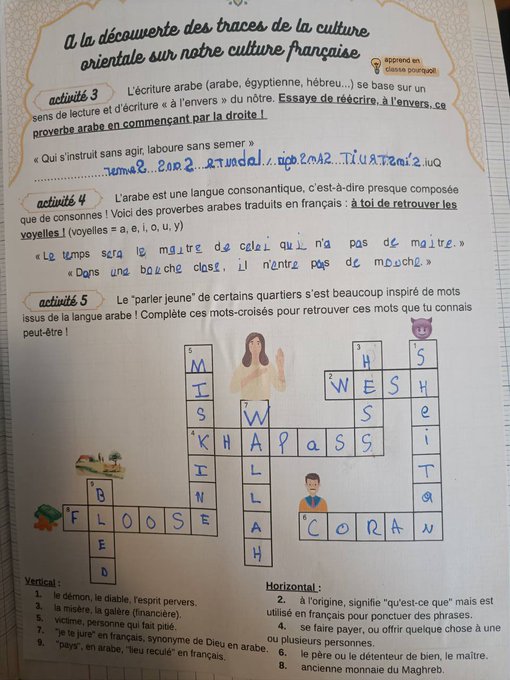 A la découverte des traces de la culture
orientale sur notre culture française
apprend en
classe pourquoi!
activité 3 L'écriture arabe (arabe, égyptienne, hébreu...) se base sur un
sens de lecture et d'écriture « à l'envers » du nôtre. Essaye de réécrire, à l'envers, ce
proverbe arabe en commençant par la droite !
« Qui s'instruit sans agir, laboure sans semer »
.iuQ
activité 4 L'arabe est une langue consonantique, c'est-à-dire presque composée
que de consonnes ! Voici des proverbes arabes traduits en français : à toi de retrouver les
voyelles ! (voyelles = a, e, i, o, u, y)
« Le temps sera le maitre de celui qui n'a pas de maitre. »
« Dans une bouche close, il n'entre pas de mouche. »
activité 5 Le "parler jeune" de certains quartiers s'est beaucoup inspiré de mots
issus de la langue arabe ! Complète ces mots-croisés pour retrouver ces mots que tu connais
peut-être !
5 M 3 H 1 S
I 2 W E S H
S 7 W S e
4 K H A P a S S i
I L T
9 B N L a
8 F L O O S E A 6 C O R A N
E H
D
Vertical :
1. le démon, le diable, l'esprit pervers.
3. la misère, la galère (financière).
5. victime, personne qui fait pitié.
7. "je te jure" en français, synonyme de Dieu en arabe.
9. "pays", en arabe, "lieu reculé" en français.
Horizontal :
2. à l'origine, signifie "qu'est-ce que" mais est
utilisé en français pour ponctuer des phrases.
4. se faire payer, ou offrir quelque chose à une
ou plusieurs personnes.
6. le père ou le détenteur de bien, le maître.
8. ancienne monnaie du Maghreb.